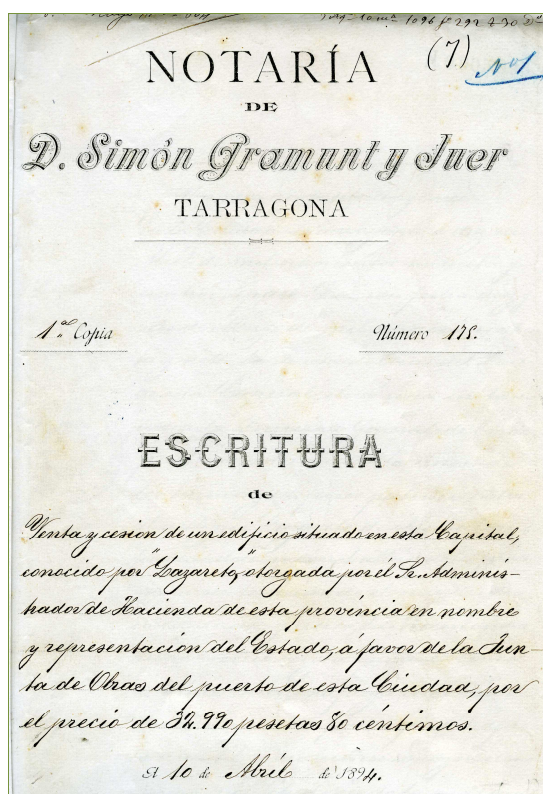 1096 fº 292
(7)
Nº 1
NOTARÍA
DE
D. Simón Gramunt y Juer
TARRAGONA
1ª Copia
Número 175.
ESCRITURA
de
Venta y cesion de un edificio situado en esta Capital,
conocido por "Lazareto," otorgada por él Sr. Adminis-
trador de Hacienda de esta província en nombre
y representación del Estado, á favor de la Jun-
ta de Obras del puerto de esta Ciudad, por
el precio de 32.990 pesetas 80 céntimos.
A 10 de Abríl de 1894.